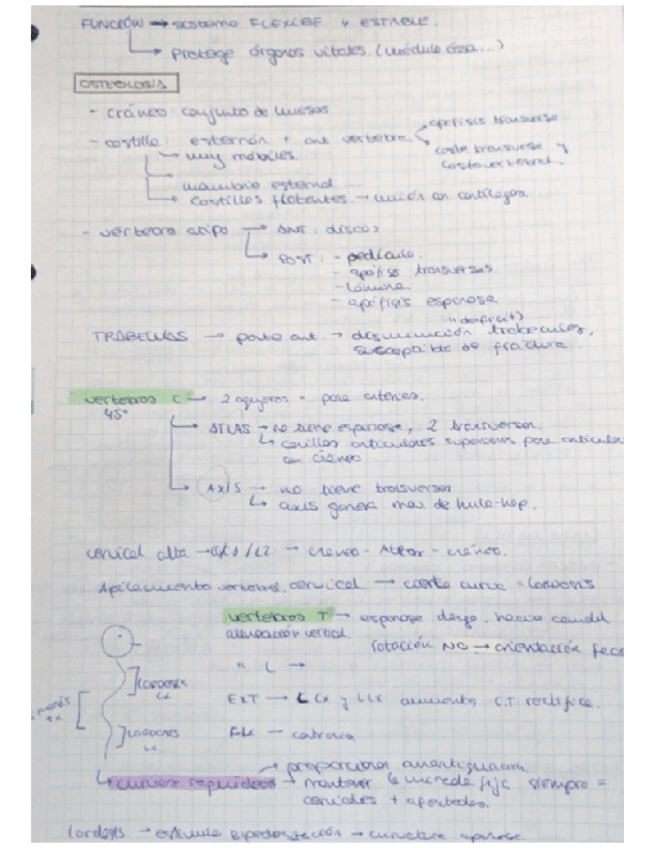 FUNCIÓN → sistema FLEXIBLE y ESTABLE.
→ Protege órganos vitales. (médula ósea...)
OSTEOLOGÍA
- cráneo: conjunto de huesos
- costilla: esternón + ant vertebra
apófisis transversa
costo transversa y costovertebral.
→ muy móviles.
→ manubrio esternal
→ costillas flotantes → unión con cartílagos.
- vértebra atipo → ANT: discos
→ POST: - pedículo.
- apófisis transversas
- lámina
- apófisis espinosa
TRABECULAS → parte ant. → disminución trabeculas,
susceptible de fractura.
vertebras C → 2 agujeros = para arterias.
45°
→ ATLAS → no tiene espinosa, 2 transversas.
→ carillas articulares superiores para articular
con cráneo
→ AXIS → no tiene transversas
→ axis genera mov de hula-hop.
cervical alta → / C2 → cráneo - Atlas - cráneo.
Apilamiento vertebral cervical → cierta curva = Lordosis
vertebras T → espinosa larga, hacia caudal
alineación
rotación NO → orientación
" L →
LORDOSIS
CX
EXT → LCX y LLX aumenta C.T rectifica.
LORDOSIS
Lx
FLX →
→ proporcionar amortiguación
curvas raquídeas → mantener la mirada fija siempre =
cervicales +
lordosis → estimula Bipedestación → curvatura